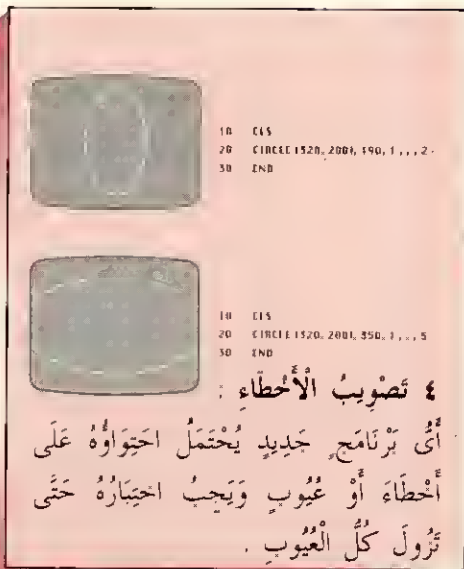 10 CLS
20 CIRCLE (320, 200), 190, 1 , , , 2
30 END
10 CLS
20 CIRCLE (320, 200), 350, 1 , , , 5
30 END
٤ تَصْوِيبُ الْأَخْطَاءِ :
أَىُّ بَرْنَامَجٍ جَدِيدٍ يُحْتَمَلُ احْتِوَاؤُهُ عَلَى
أَخْطَاءَ أَوْ عُيُوبٍ وَيَجِبُ اخْتِبَارُهُ حَتَّى
تَزُولَ كُلُّ الْعُيُوبِ .